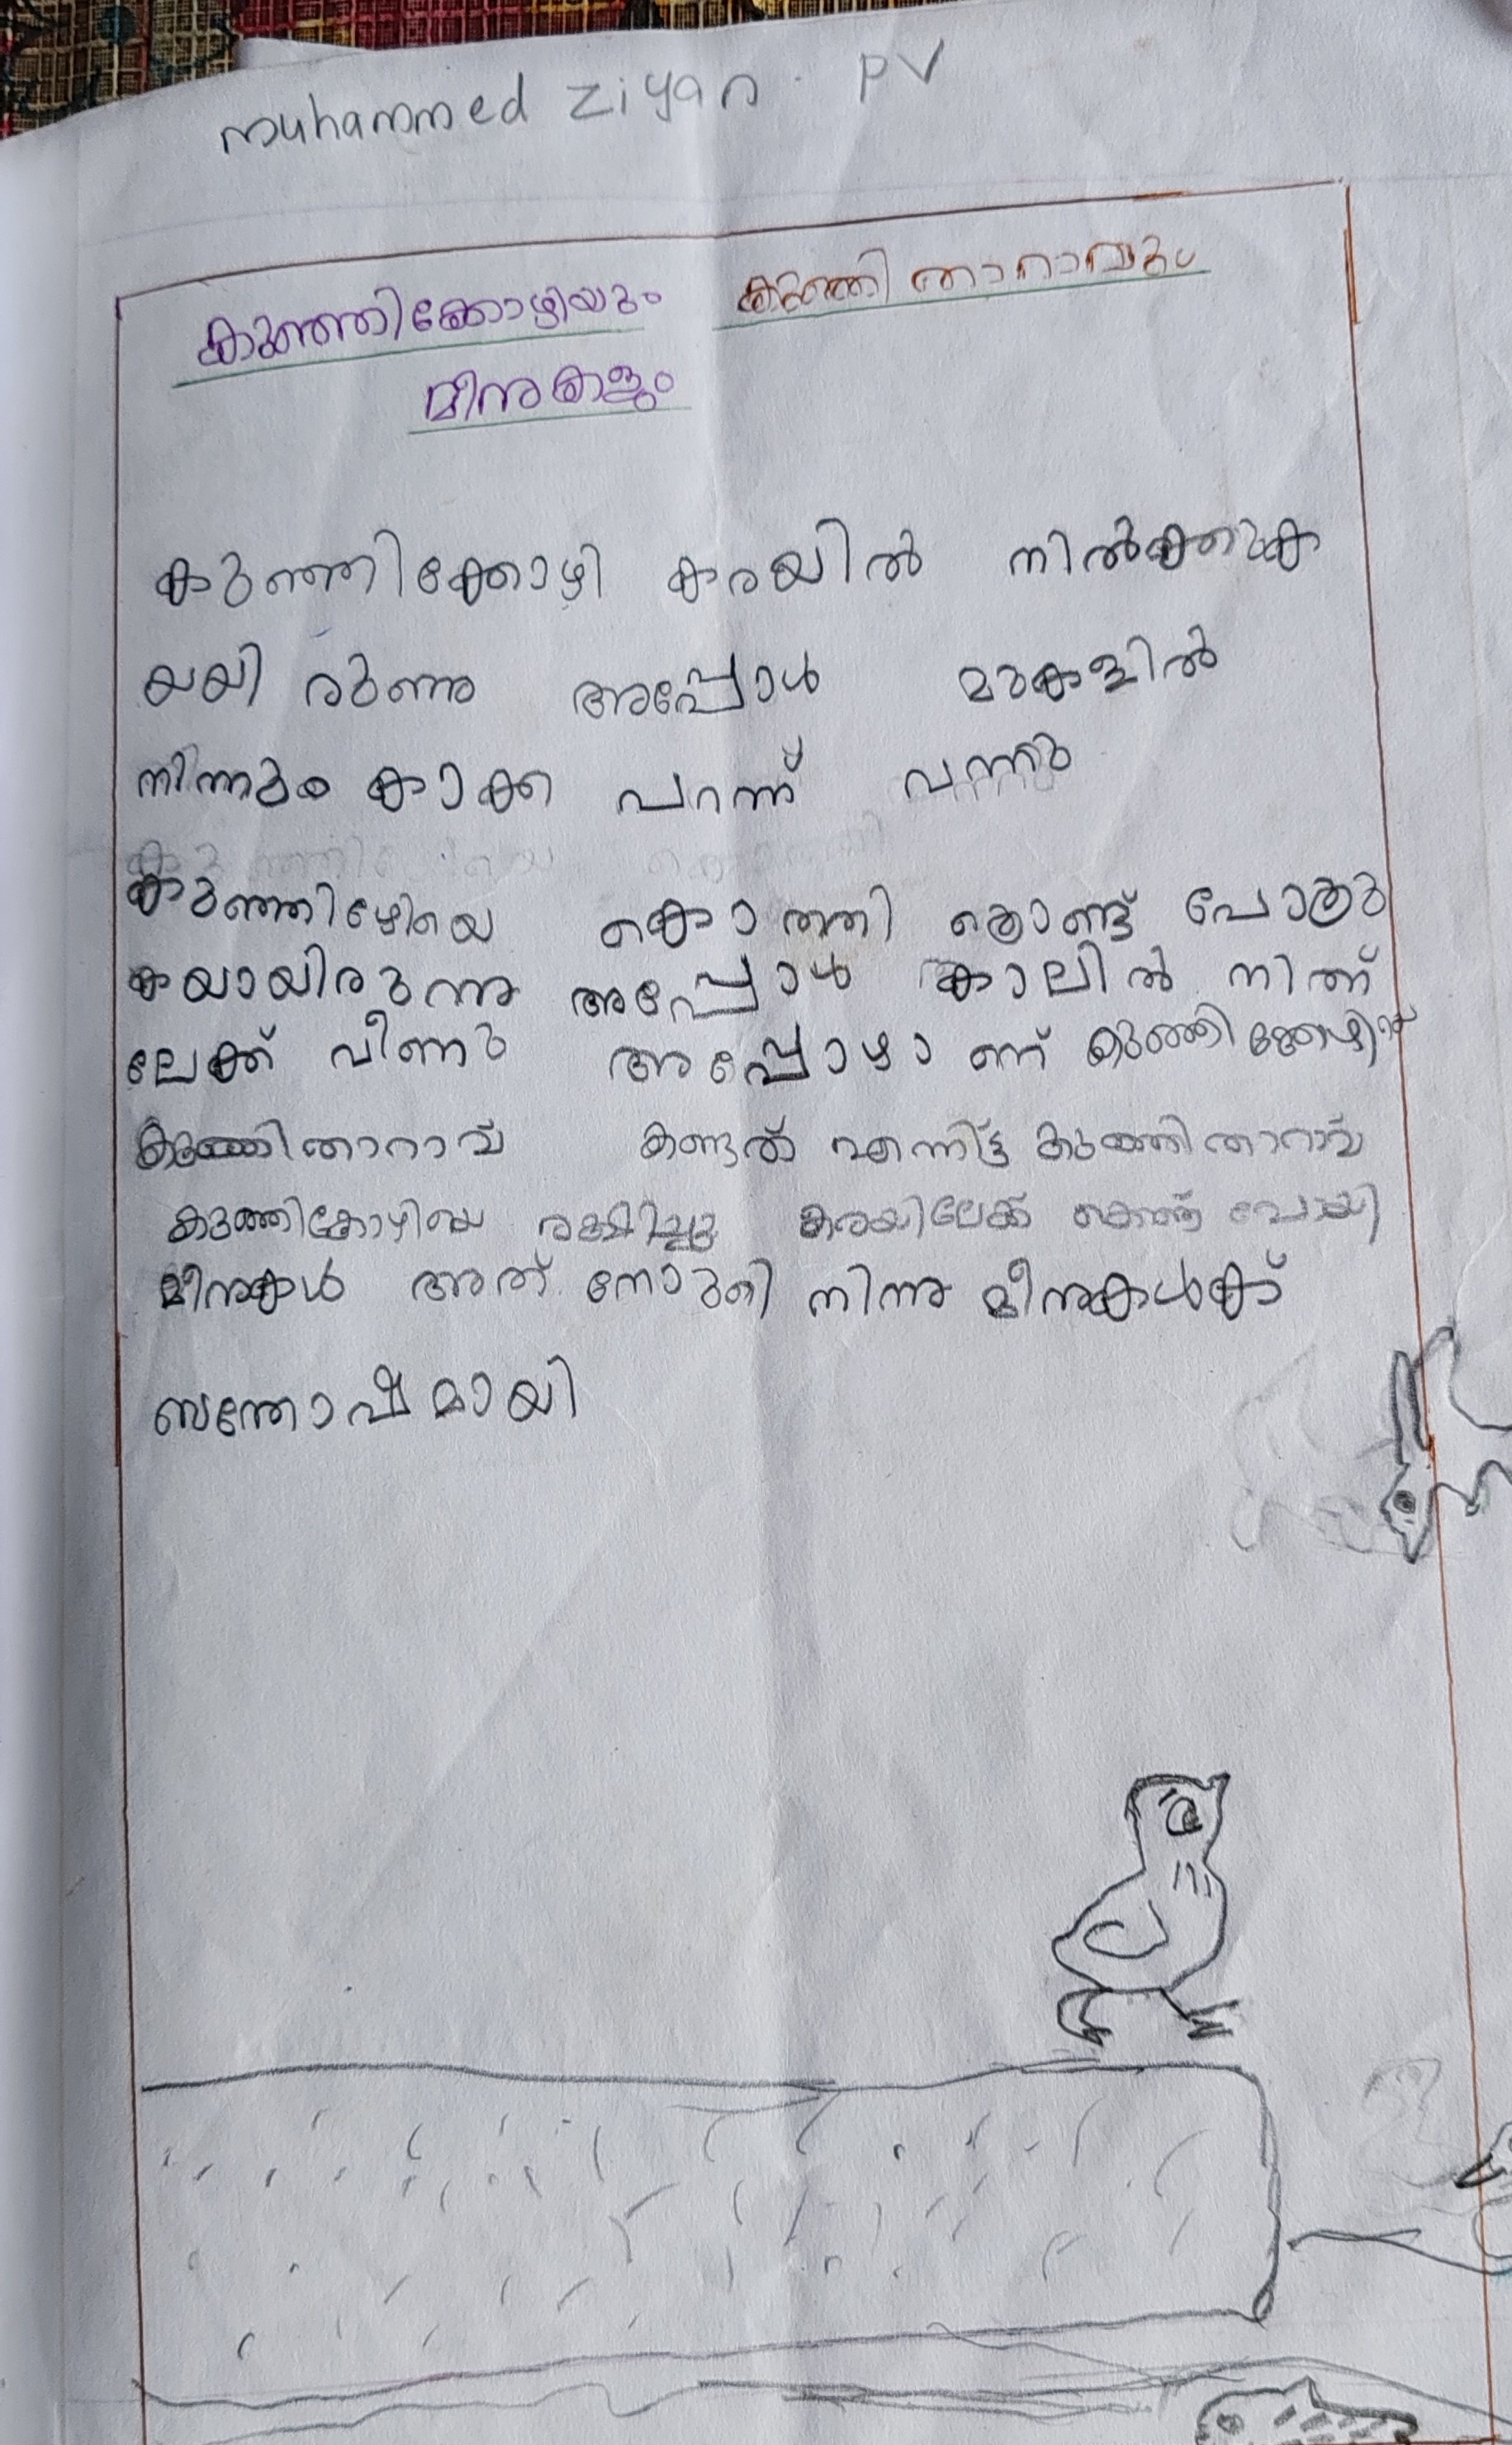 muhammed ziyan. PV
കുഞ്ഞിക്കോഴിയും കുഞ്ഞി താറാവും
മീനുകളും
കുഞ്ഞിക്കോഴി കരയിൽ നിൽക്കുക
യയി രുന്നു അപ്പോൾ മുകളിൽ
നിന്നും കാക്ക പറന്ന് വന്നു
കുഞ്ഞിഴേിയെ കൊത്തി കൊണ്ട് പോകു
കയായിരുന്നു അപ്പോൾ കാലിൽ നിന്ന്
ലേക്ക് വീണു അപ്പോഴാ ണ് കുഞ്ഞി
കുഞ്ഞിതാറാവ് കണ്ടത് എന്നിട്ട് കുഞ്ഞി താറാവ്
കുഞ്ഞികോഴിയെ രക്ഷിച്ചു കരയിലേക്ക് പോയി
മീനുകൾ അത് നോക്കി നിന്നു മീനുകൾക്ക്
സന്തോഷമായി